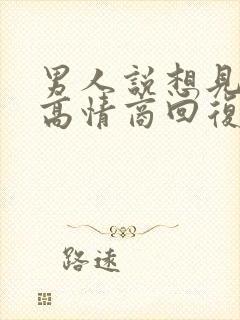 男人説想見
高情商回復
路遠